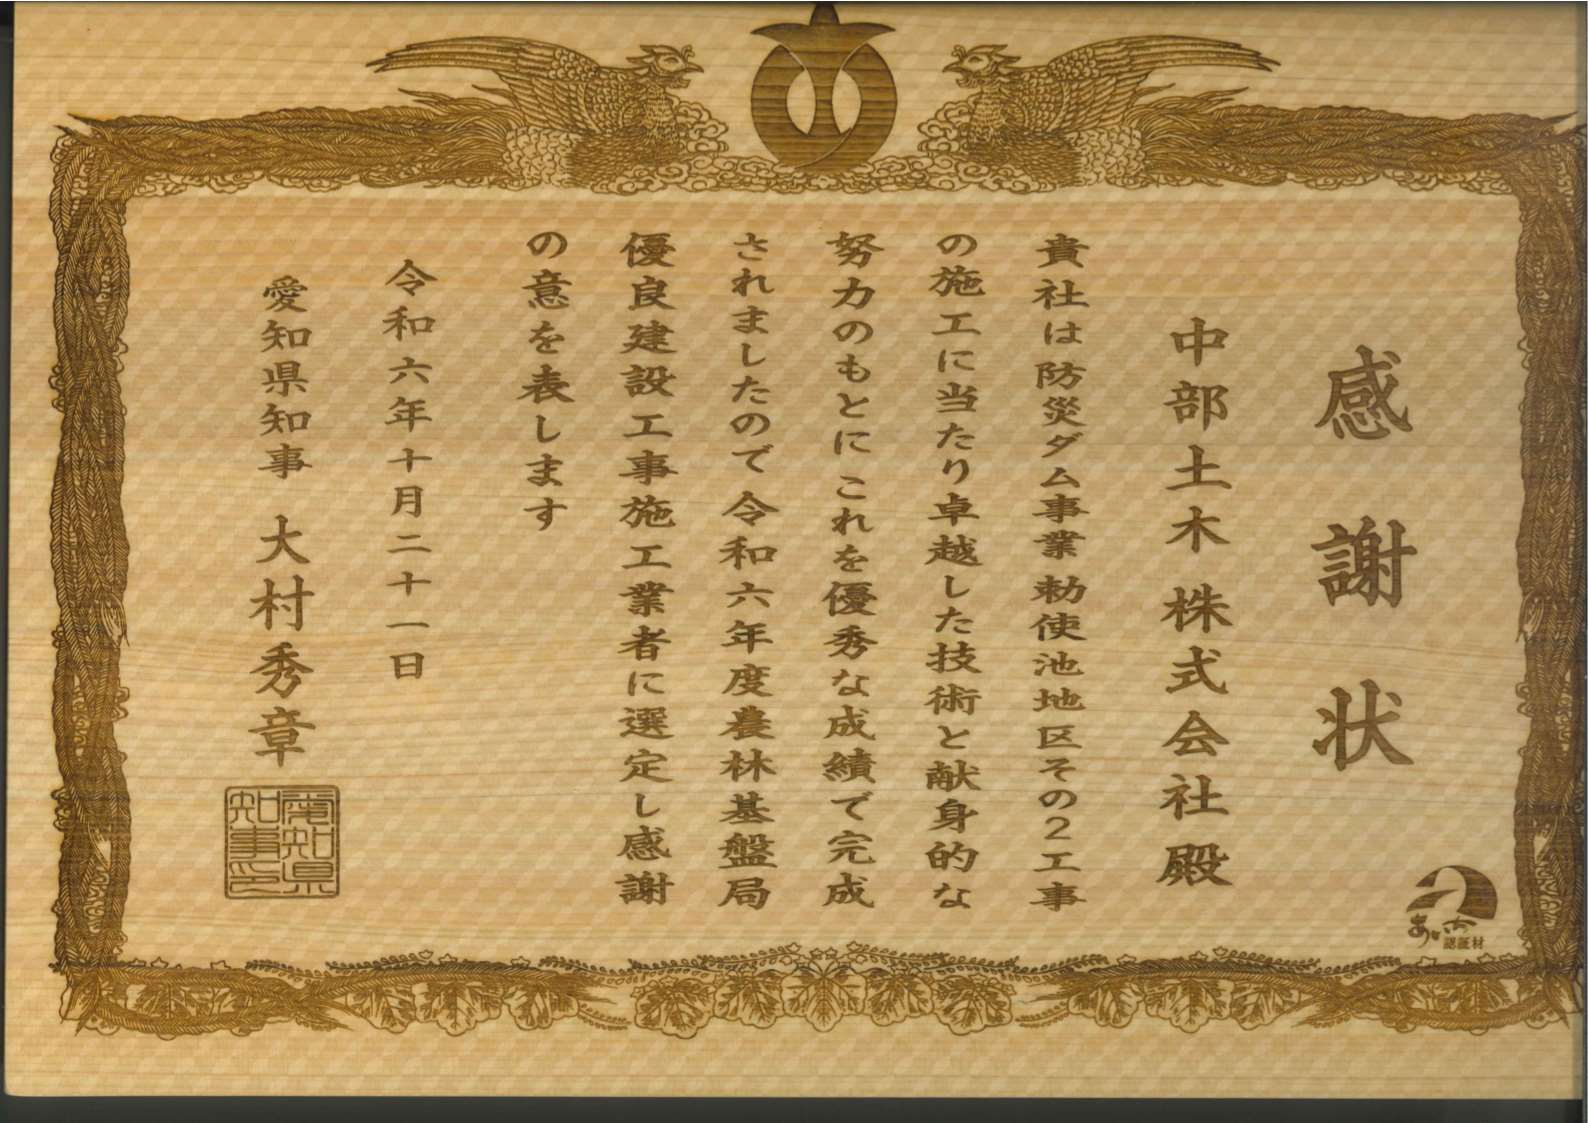 感謝状
中部土木株式会社殿
貴社は防災ダム事業勅使池地区その2工事
の施工に当たり卓越した技術と献身的な
努力のもとに これを優秀な成績で完成
されましたので 令和六年度農林基盤局
優良建設工事施工業者に選定し感謝
の意を表します
令和六年十月二十一日
愛知県知事 大村秀章
愛知県
知事印
あいち
認証材